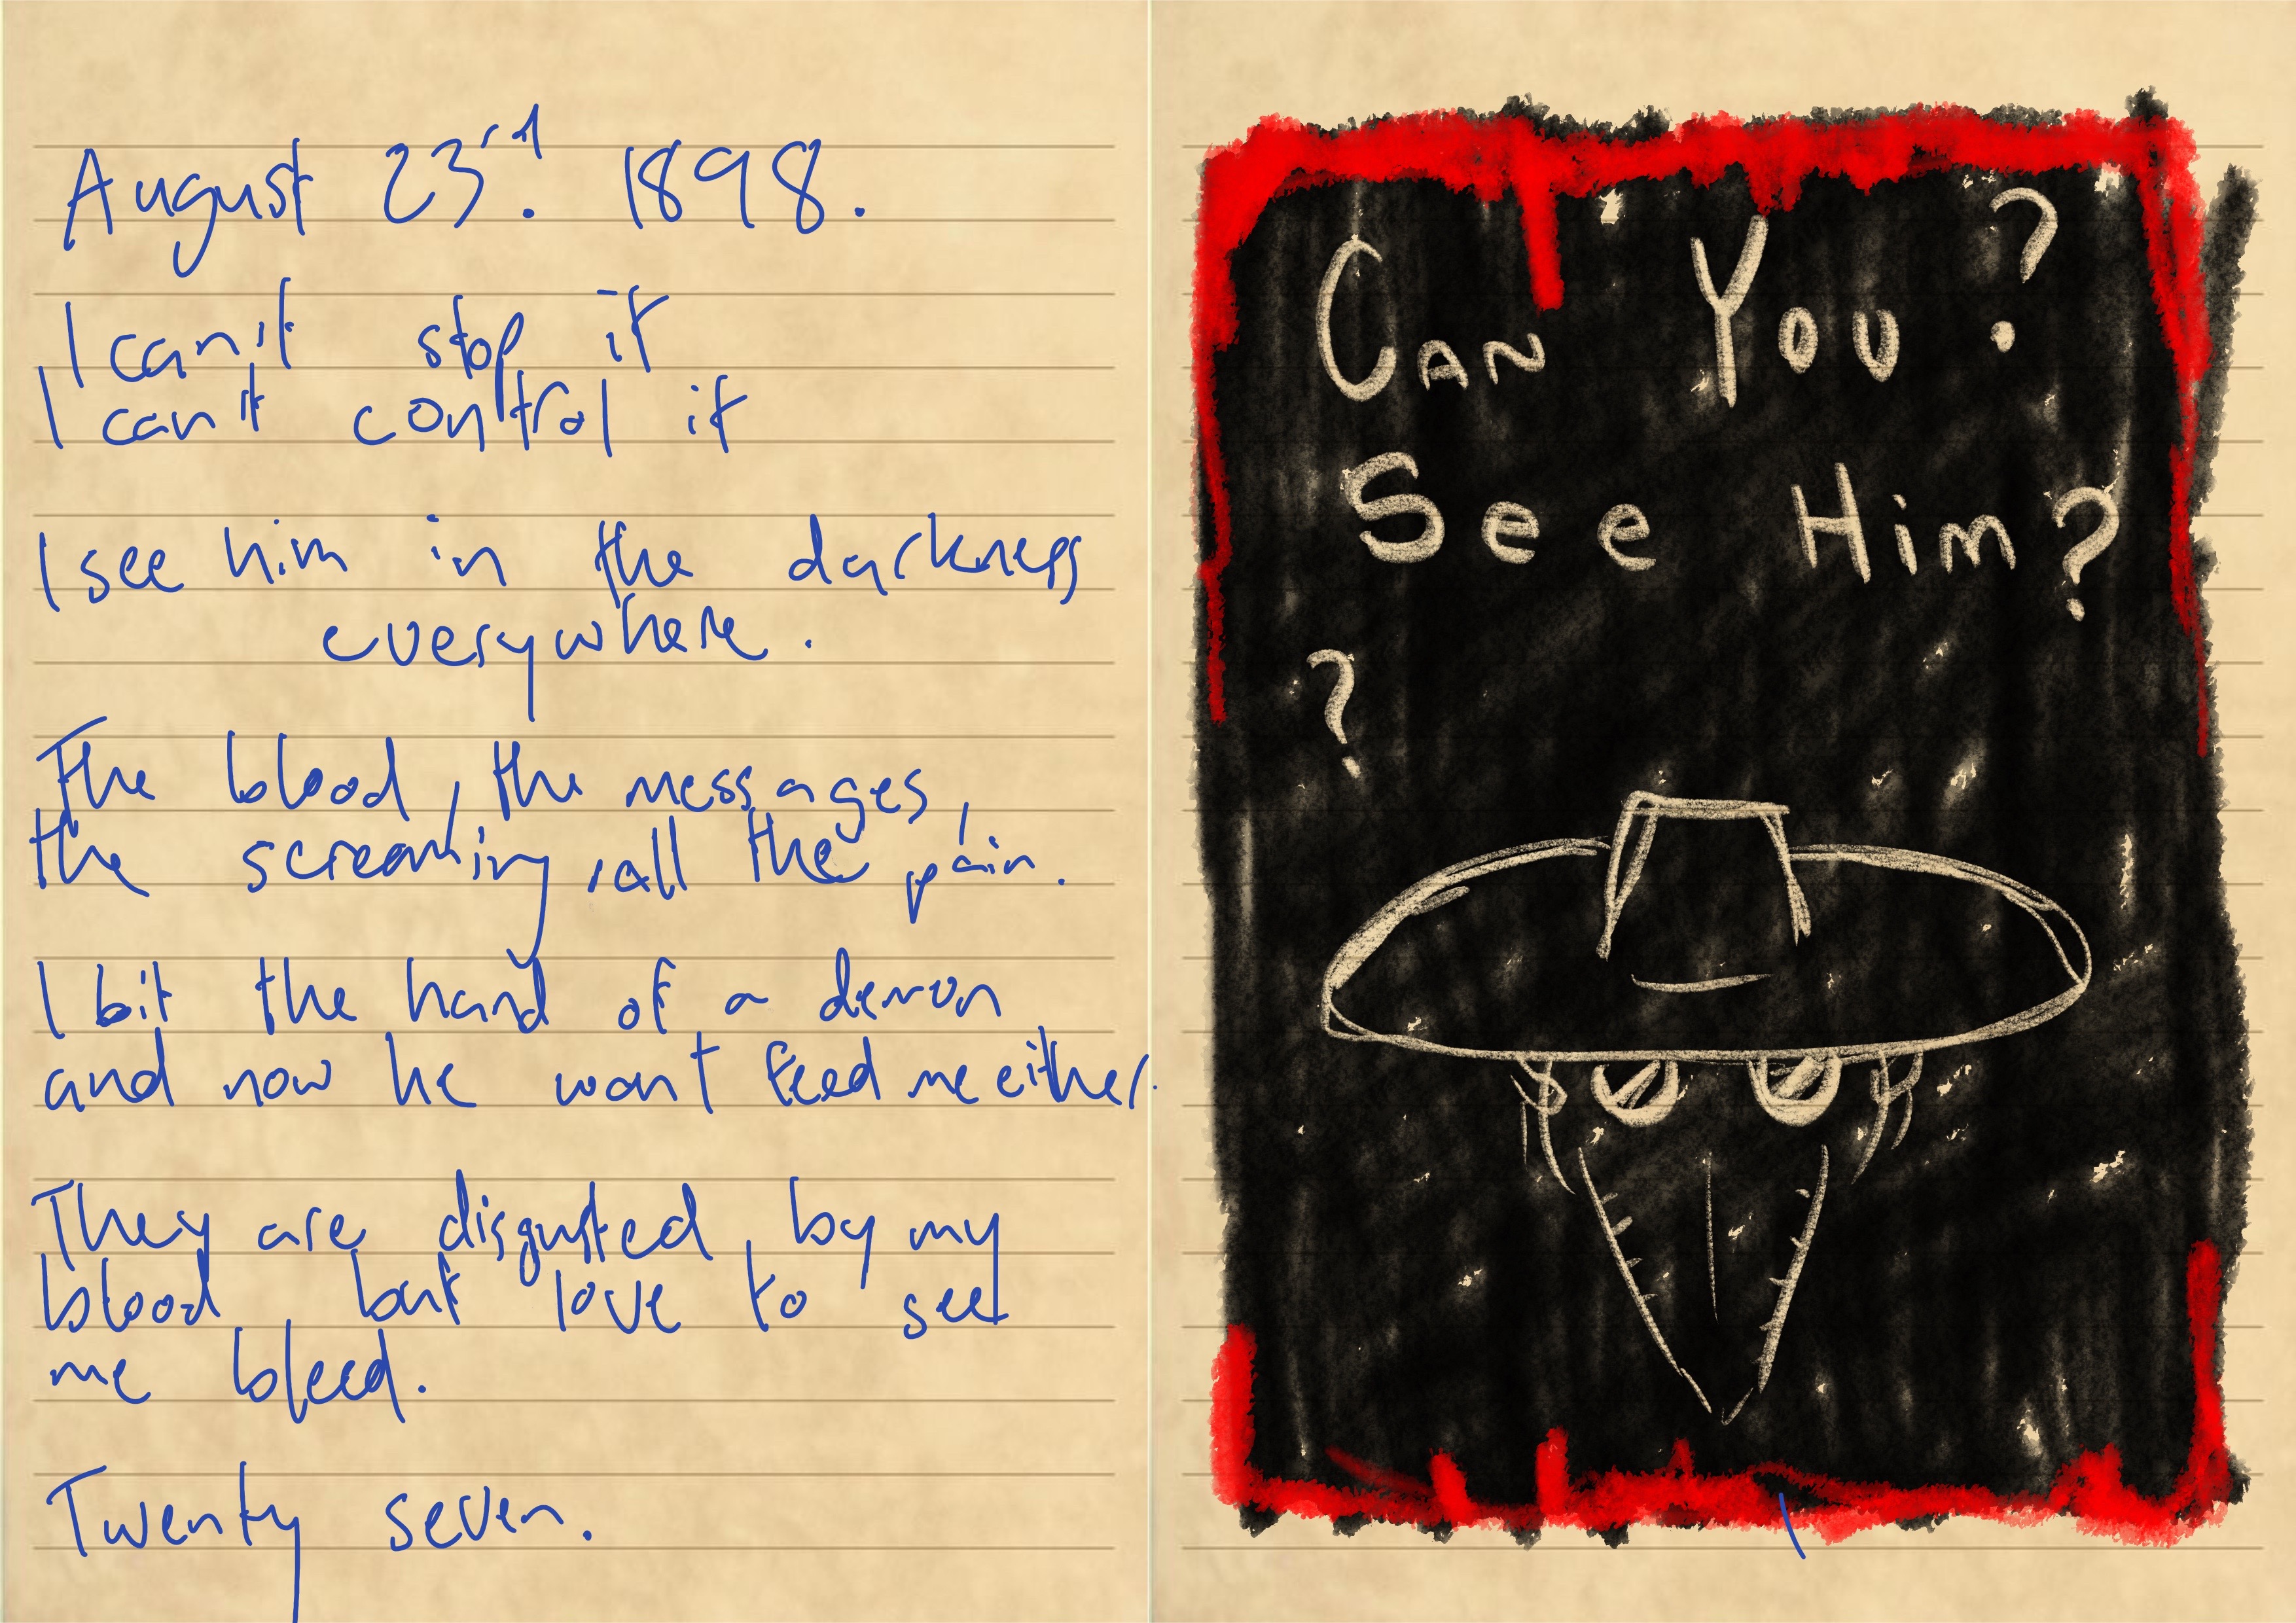 August 23rd. 1898.
I can't stop it
I can't control it
I see him in the darkness
everywhere.
The blood, the messages,
the screaming, all the pain.
I bit the hand of a demon
and now he wont feed me either.
They are disgusted by my
blood but love to see
me bleed.
Twenty seven.
Can You ?
See Him?
?